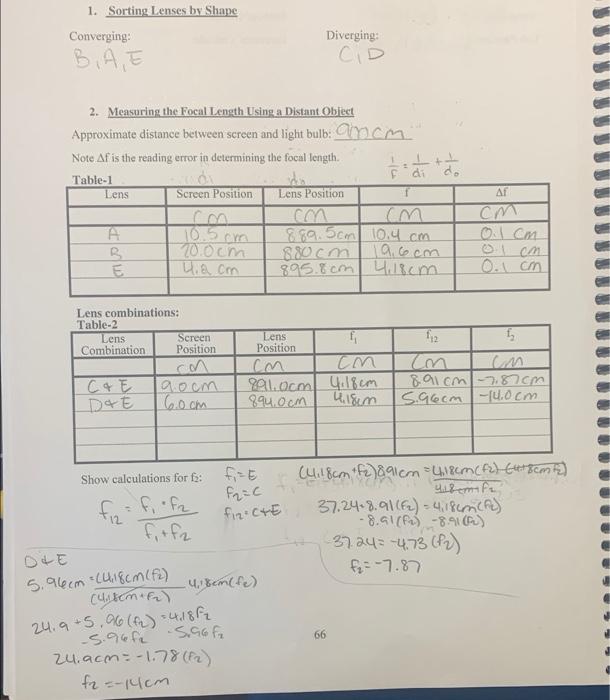 1. Sorting Lenses by Shape
Converging: Diverging:
B, A, E C, D
2. Measuring the Focal Length Using a Distant Object
Approximate distance between screen and light bulb: cm
Note Δf is the reading error in determining the focal length. 1/f = 1/di + 1/do
Table-1 di do
Lens Screen Position Lens Position f Δf
cm cm cm cm
A 10.5 cm 889.5cm 10.4 cm 0.1 cm
B 20.0cm 880cm 19.6cm 0.1 cm
E 4.2 cm 895.8cm 4.18cm 0.1 cm
Lens combinations:
Table-2
Lens Combination Screen Position Lens Position f1 f12 f2
cm cm cm cm cm
C & E 9.0cm 891.0cm 4.18cm 8.91 cm -7.87cm
D & E 6.0 cm 894.0cm 4.18cm 5.96cm -14.0cm
Show calculations for f2: f1=E (4.18cm+f2)8.91cm = 4.18cm(f2) (4.18cm+f2)
f2=C 4.18cm+f2
f12 = f1 · f2 / f1 + f2 f12=C+E 37.24+8.91(f2) = 4.18cm(f2)
-8.91(f2) -8.91(f2)
37.24 = -4.73(f2)
f2 = -7.87
D & E
5.96cm = (4.18cm(f2) 4.18cm(f2)
(4.18cm+f2)
24.9 + 5.96(f2) = 4.18f2
-5.96f2 -5.96f2
24.9cm = -1.78(f2)
f2 = -14cm
66